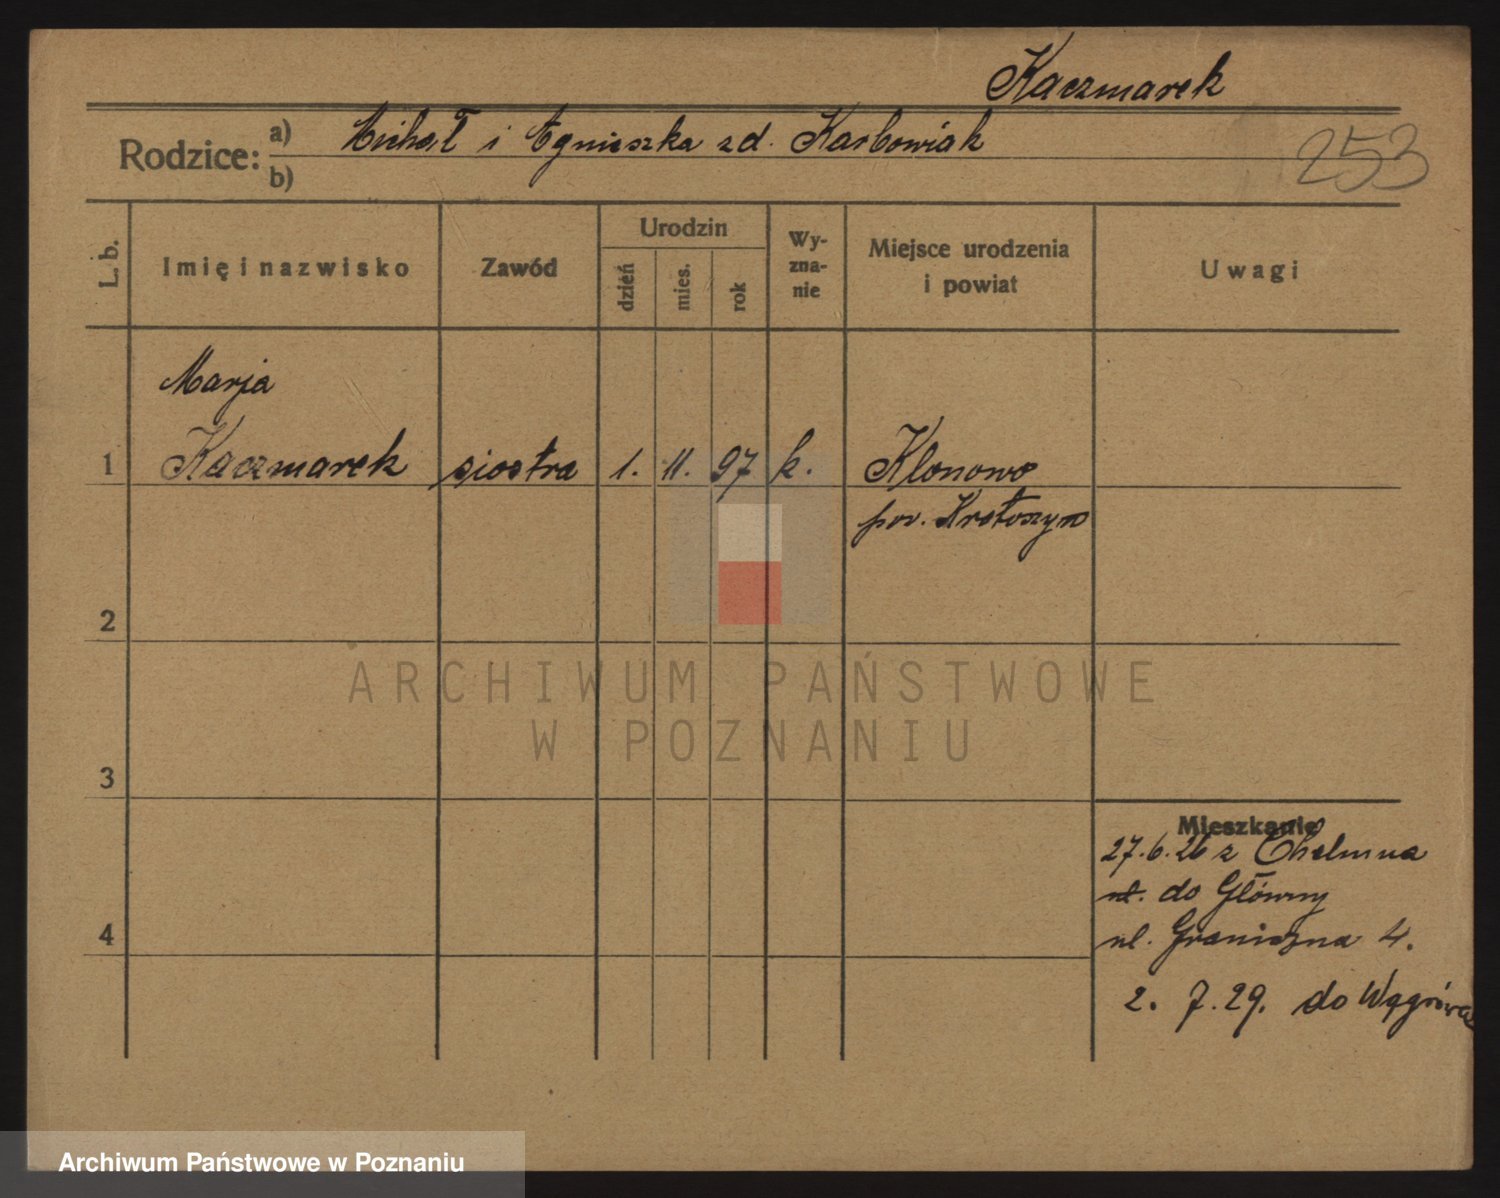 Kaczmarek
Rodzice: a) Michał i Agnieszka zd. Karbowiak
b)
253
L. b.
Imię i nazwisko
Zawód
Urodzin
dzień
mies.
rok
Wy-
zna-
nie
Miejsce urodzenia
i powiat
Uwagi
Marja
1 Kaczmarek siostra 1. 11. 97 k. Klonowo
pow. Krotoszyn
2
ARCHIWUM PAŃSTWOWE
W POZNANIU
3
Mieszkanie
27.6.26 z Chełmna
ul. do Główny
4 ul. Graniczna 4.
2. 7. 29. do Wągrówca
Archiwum Państwowe w Poznaniu